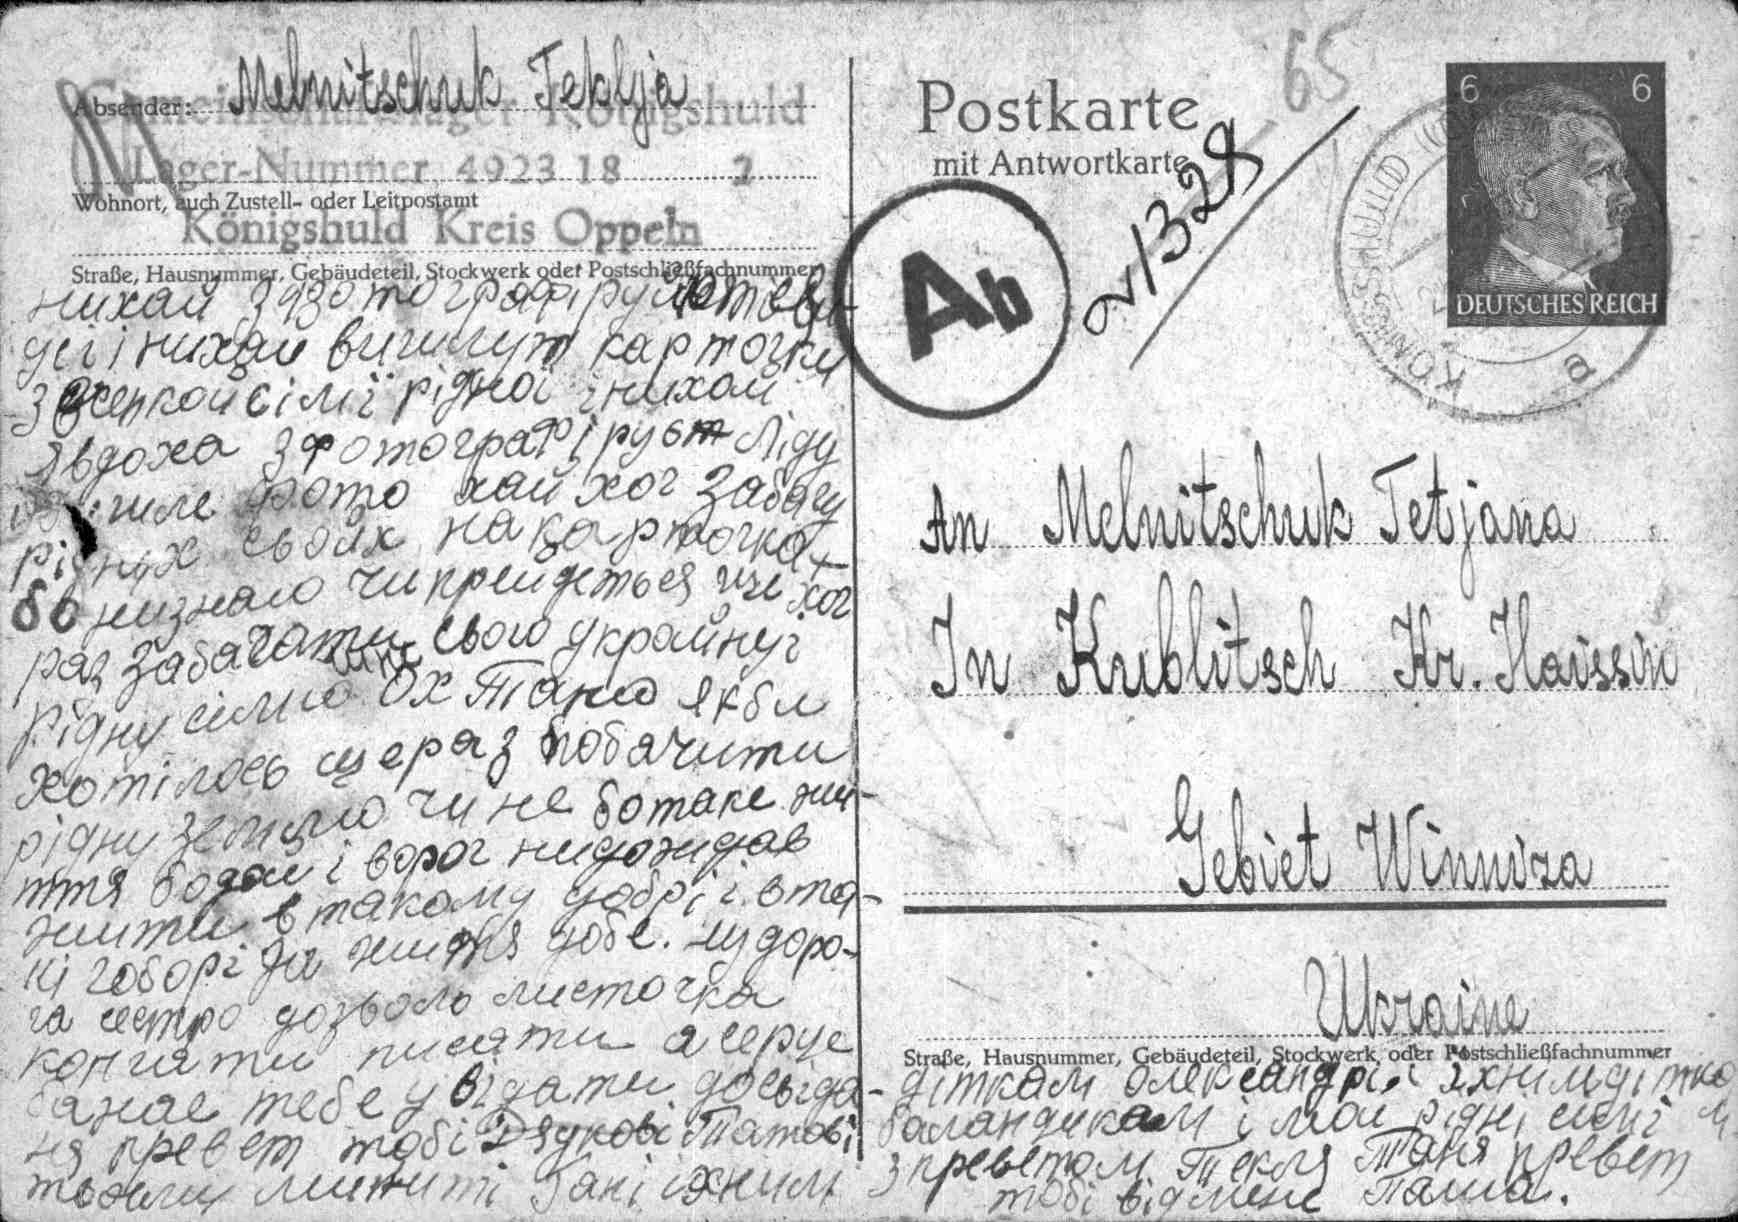 Absender: Melnitschuk Teklja
Gemeinschaftslager Königshuld
Lager-Nummer 4923 18 2
Wohnort, auch Zustell- oder Leitpostamt
Königshuld Kreis Oppeln
Straße, Hausnummer, Gebäudeteil, Stockwerk oder Postschließfachnummer
нихай
і нихай вишлут карточки
рідної і нихай
Явдоха зфотографірует Ліду
фото хай хоч забачу
рідних своїх на карточках
бо низнаю чи прейдеться ище хоч
раз забачати свою украйну і
рідну симю ох Таню якби
хотілось ще раз побачити
рідну землю чи не бо таке жи-
ття бодай і ворог нидожидав
жити в такому добрі і в та-
кі
га сестро дозволь листочка
кончати писати а серце
бажае тебе увідати досвіда-
ня превет тобі Дядькові Татові
Гані іхним
Postkarte
mit Antwortkarte
65
Ab
6 6
DEUTSCHES REICH
KÖNIGSHULD
a
An Melnitschuk Tetjana
In Kublitsch Kr. Haissin
Gebiet Winniza
Ukraine
Straße, Hausnummer, Gebäudeteil, Stockwerk oder Postschließfachnummer
діткам олександрі і іхним дітка
баландикам і мои рідні симі
з преветом Текля Таня превет
тобі від мене Паша.